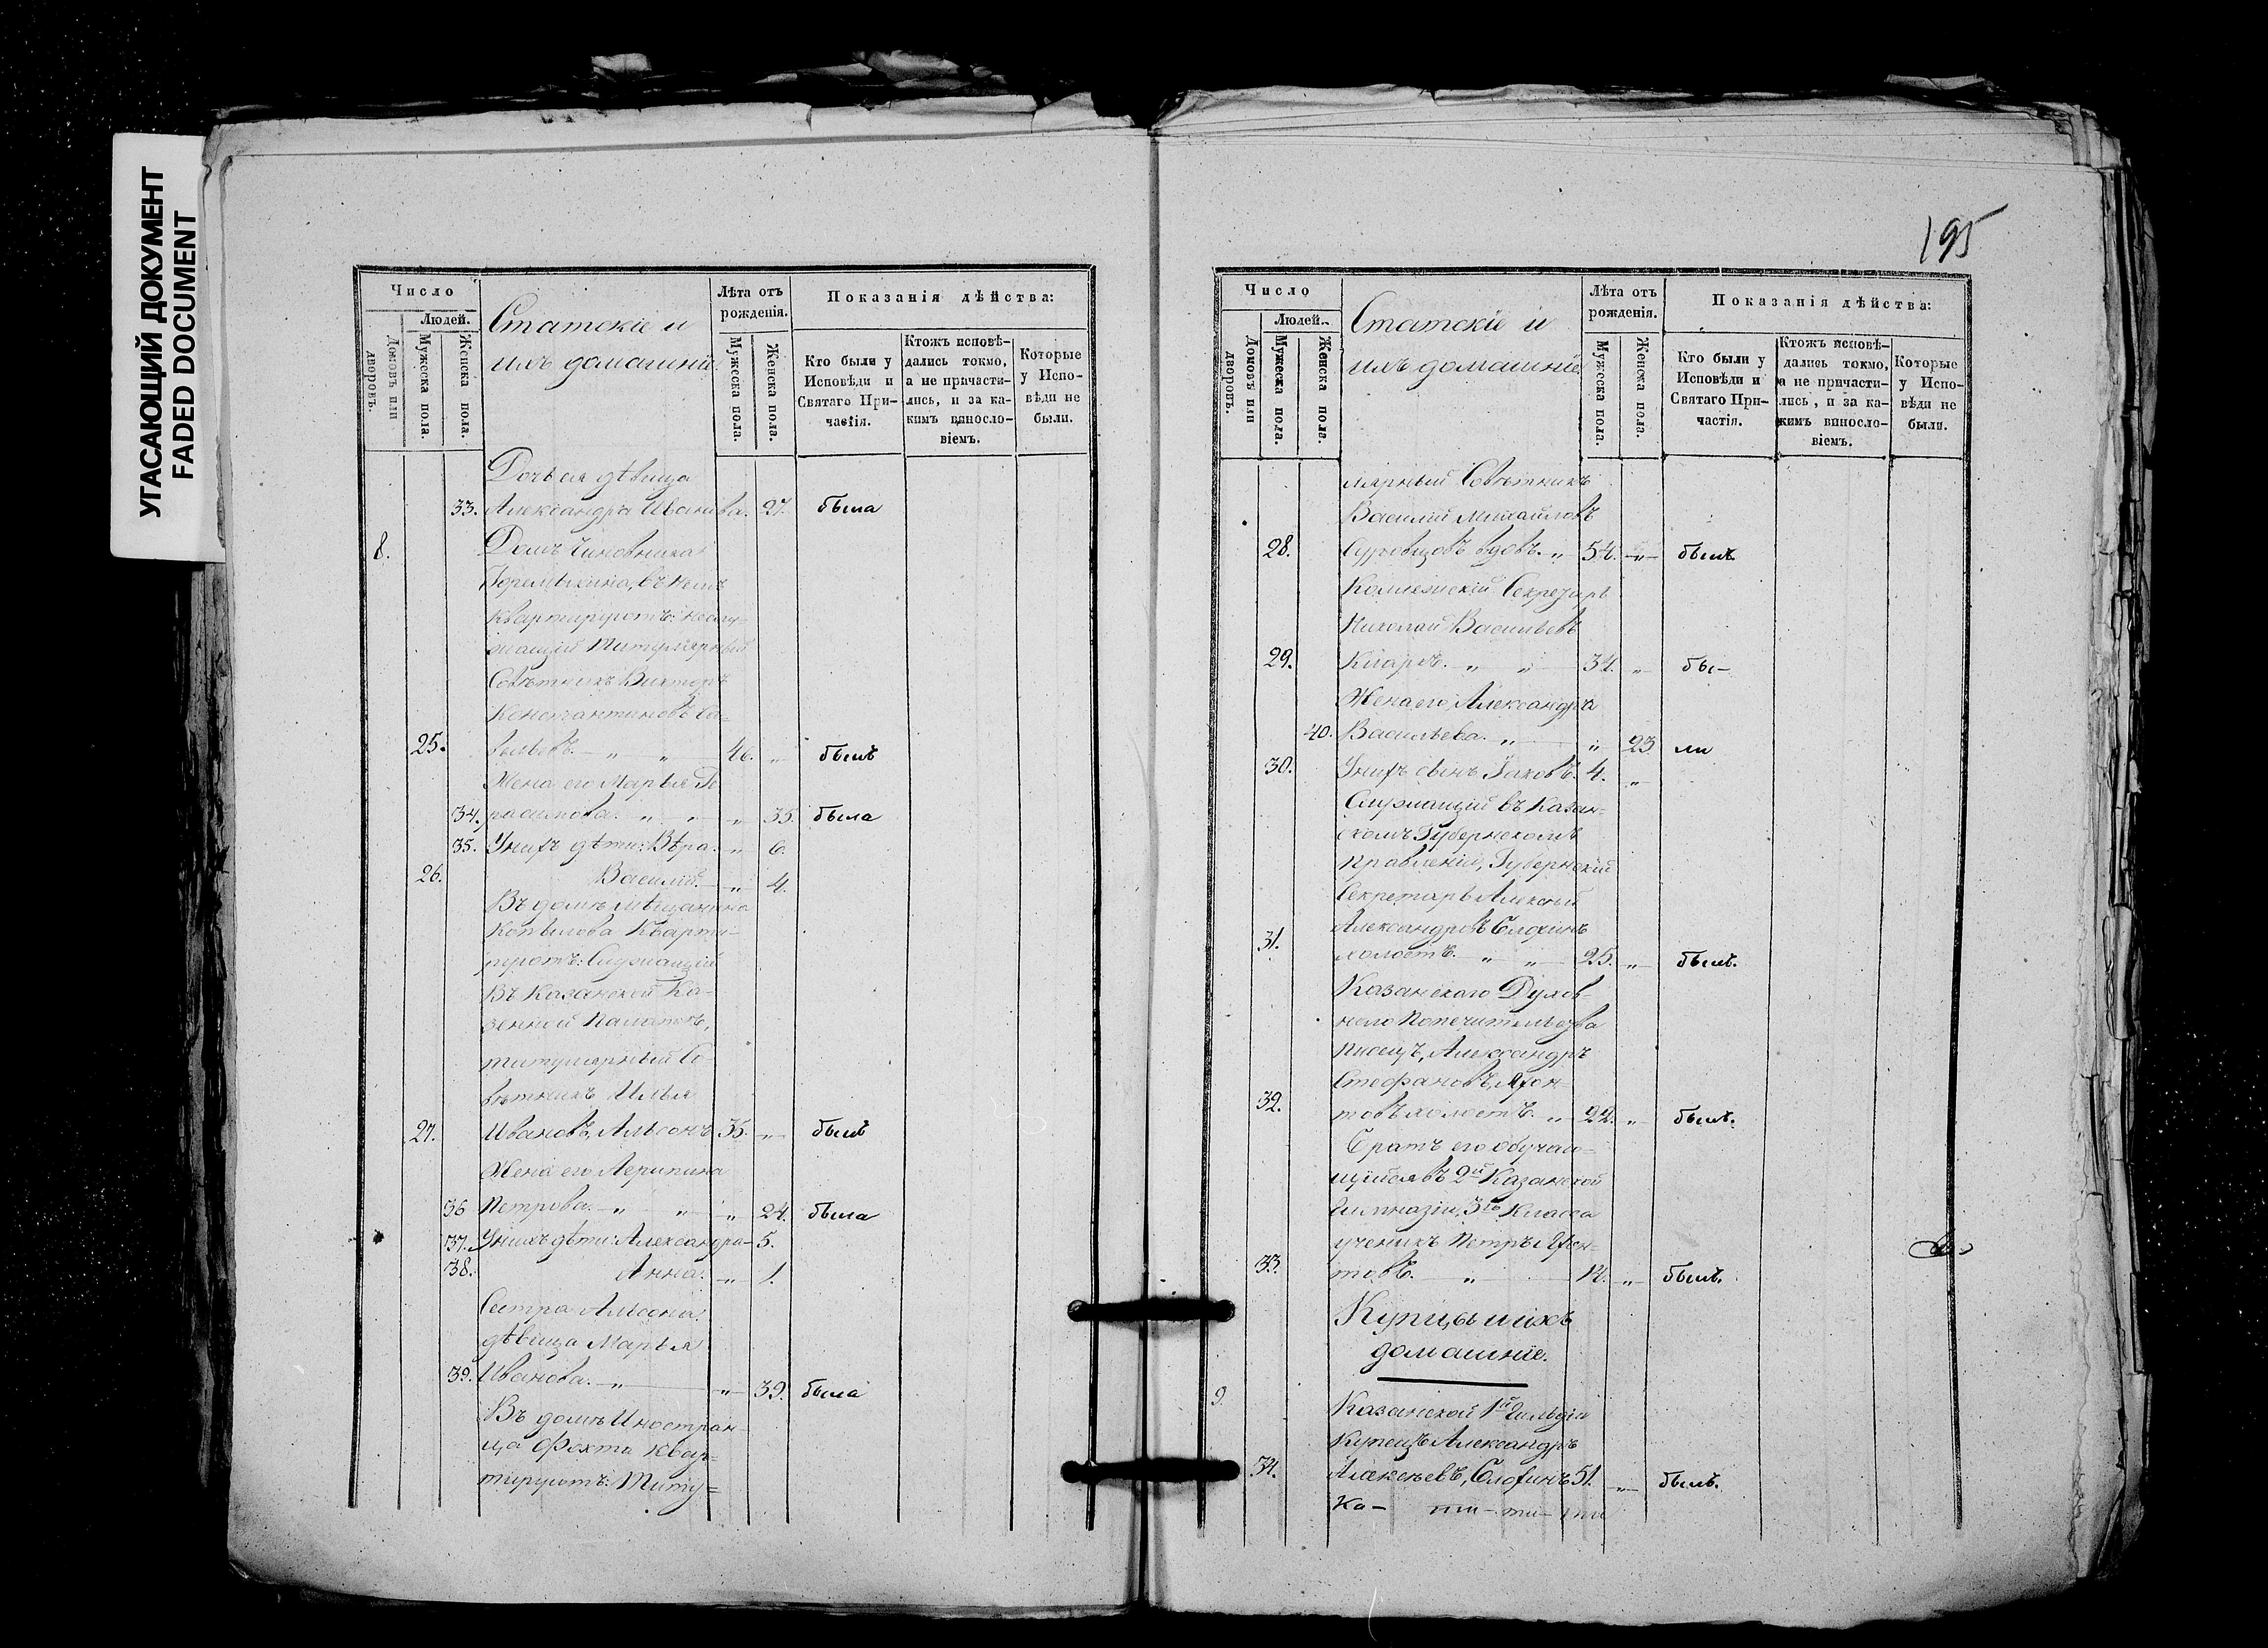 УГАСАЮЩИЙ ДОКУМЕНТ
FADED DOCUMENT
Число
Людей.
Домовъ или дворовъ.
Мужеска пола.
Женска пола.
Статскіе и
ихъ домашніе.
Лѣта отъ
рожденія.
Мужеска пола.
Женска пола.
Показанія дѣйства:
Кто были у
Исповѣди и
Святаго При-
частія.
Ктожъ исповѣ-
дались токмо,
а не причасти-
лись, и за ка-
кимъ винносло-
віемъ.
Которые
у Испо-
вѣди не
были.
Дочь ея дѣвица
33. Александра Иванова. 27. была
8. Домъ Чиновника
Горемыкина, въ немъ
Квартируютъ: неслу-
жащій Титулярный
Совѣтникъ Викторъ
Константиновъ Са-
25. вельевъ. — „ „ 46. „ былъ
Жена его Марья Ге
34. расимова. „ „ „ 35. была
35. У нихъ дѣти: Вѣра. „ 6.
26. Василій. — „ 4.
Въ домѣ мѣщанина
Копылова Кварти-
руютъ: Служащій
Въ Казанской Ка-
зенной Палатѣ,
титулярный Со
вѣтникъ Илья
27. Ивановъ, 35. „ былъ
Жена его
36 Петрова. — „ „ „ 24. была
37. У нихъ дѣти: Александра — 5.
38. Анна. — „ 1.
Сестра
дѣвица Марья
39. Иванова. — „ „ 39. была
Въ домѣ Иностран-
ца Фохта Квар-
тируютъ: Титу=
195
Число
Людей.
Домовъ или дворовъ.
Мужеска пола.
Женска пола.
Статскіе и
ихъ домашніе.
Лѣта отъ
рожденія.
Мужеска пола.
Женска пола.
Показанія дѣйства:
Кто были у
Исповѣди и
Святаго При-
частія.
Ктожъ исповѣ-
дались токмо,
а не причасти-
лись, и за ка-
кимъ винносло-
віемъ.
Которые
у Испо-
вѣди не
были.
лярный Совѣтникъ
Василій Михайловъ
28. Суровцовъ вдовъ. „ 54. „ былъ
Коллежскій Секретарь
Николай Васильевъ
29. „ „ 34. „ бы —
Жена его, Александра
40. Васильева. „ „ 23 ли
30. У нихъ сынъ Яковъ. 4. „
Служащій въ Казан-
скомъ Губернскомъ
Правленіи, Губернскій
Секретарь Алексѣй
31. Александровъ Блохинъ
холостъ. „ „ 25. „ былъ.
Казанскаго Духов-
наго Попечительства
писецъ, Александръ
Стефановъ,
32. товъ холостъ. „ 22. „ былъ.
Братъ его обучаю=
щійся въ 2й Казанской
Гимназіи, 3го Класса
ученикъ Петръ
33. товъ. „ 14. „ былъ.
Купцы и ихъ
домашніе.
9. Казанской 1й Гильдіи
Купецъ Александръ
34. Алексѣевъ, Блохинъ 51. „ былъ.